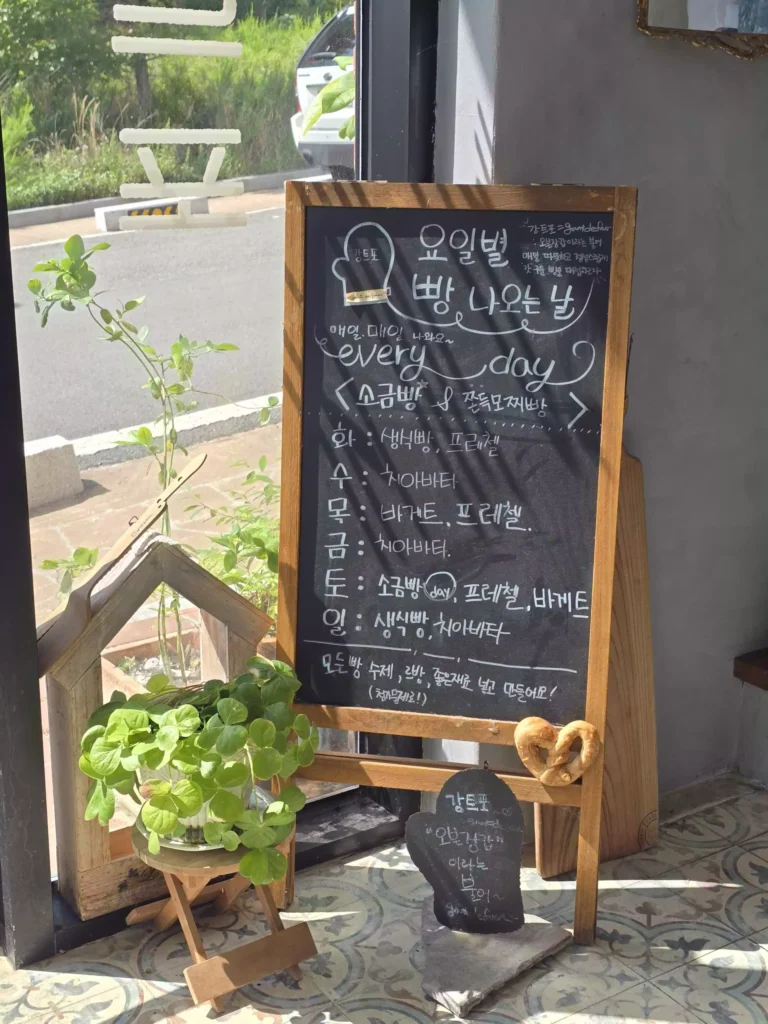 강트포
요일별
빵 나오는 날
강트포=
오븐장갑이라는 불어
매일.매일 나와요~
every day
<소금빵 & 쫀득모찌빵>
화 : 생식빵, 프레첼
수 : 치아바타
목 : 바게트, 프레첼.
금 : 치아바타.
토 : 소금빵 day, 프레첼, 바게트
일 : 생식빵, 치아바타
모든빵 수제, 유기농, 좋은재료 넣고 만들어요!
강트포
"오븐장갑"
이라는
불어~